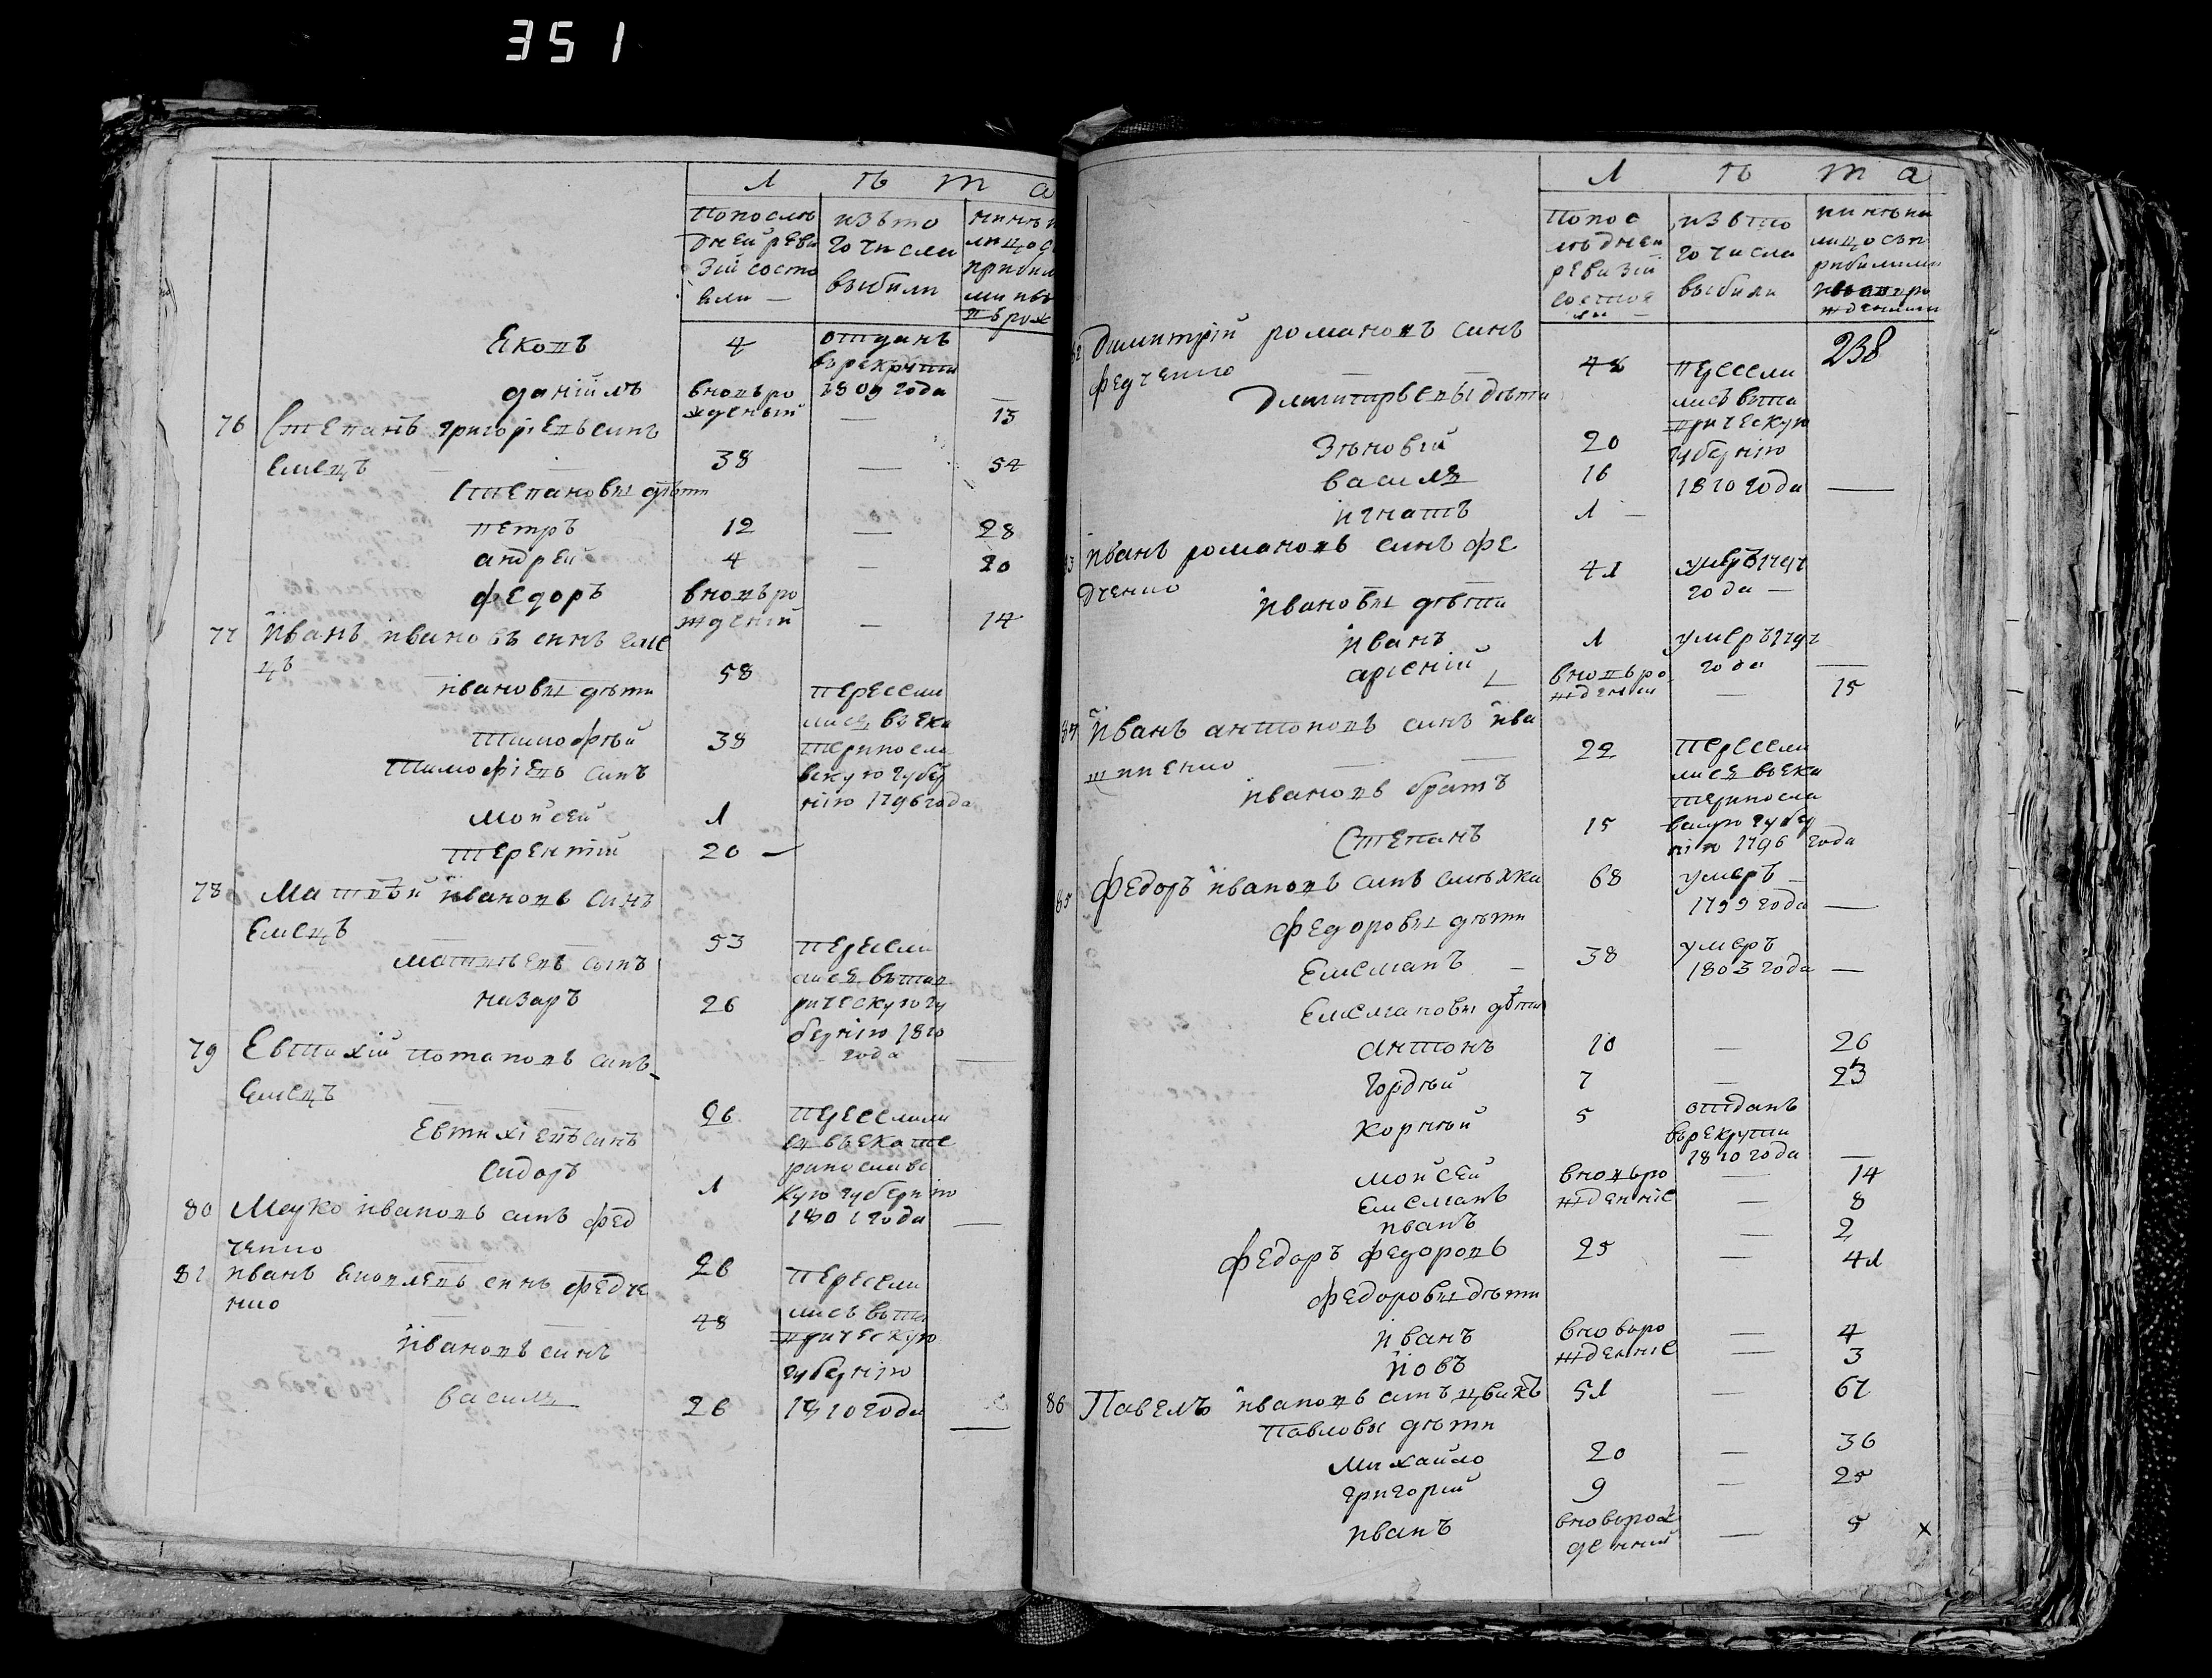 351
Л ѣ т а
По послѣ
дней реви
зіи состо
яли —
изъ то
го числа
выбыли
нинѣ н
лицо с
прибил
ми и въ
новь рож
Яковъ 4 отданъ
въ рекруты
1809 года
даніилъ вновь ро
жденый — 13
76 Степанъ григоріевъ синъ
Емецъ 38 — 54
Степановы дѣти
петръ 12 — 28
андрей 4 — 20
федоръ вновь ро
жденій — 14
77 иванъ ивановъ синъ еме
цъ 58
ивановы дѣти
переселы
лися въ ека
теринosла
вскую губер
нію 1796 года
Тимофѣй 38
Тимофіевъ синъ
мойсей 1
терентій 20 —
78 Матвѣй ивановъ синъ
Емецъ 53 пересели
лися въ тав
рическую гу
бернію 1810
года —
матвѣевъ сынъ
назаръ 26
79 Евтихій потаповъ синъ
Емецъ 26 переселили
ся въ екате
ринославс
кую губернію
1801 года —
Евтихіевъ синъ
Сидоръ 1
80 Марко ивановъ синъ фед
ченко 26
81 иванъ яковлевъ синъ федче
нко 48 пересели
лисъ въ та
врическую
губернію
1810 года —
ивановъ синъ
василь 26
Л ѣ т а
По пос
лѣдней
ревизіи
состоя
ли —
изъ то
го числа
выбили
ни нѣ на
лицо съ п
рибилими
и вновь ро
жденими
238
82 Димитрій романовъ синъ
федченко 42 пересели
лисъ въ та
врическую
губернію
1810 года —
Димитріевы дѣти
Зѣновій 20
василь 16
игнатъ 1 —
83 иванъ романовъ синъ фе
дченко 41 умеръ 1797
года —
ивановы дѣти
иванъ 1 умеръ 1797
года —
арсеній вновь ро
жденій — 15
84 иванъ антоновъ синъ ива
щенко 22 пересели
лися въ ека
териносла
вскую губер
нію 1796 года
ивановъ братъ
Степанъ 15
85 федоръ ивановъ синъ 68 умеръ —
1799 года —
федоровы дѣти
Емелианъ — 38 умеръ
1803 года —
Емелиановы дѣти
Антонъ 10 — 26
Гордѣй 7 — 23
Корнѣй 5 отданъ
въ рекруты
1810 года —
мойсей вновь ро — 14
Емелианъ жденніе — 8
иванъ 2
федоръ федоровъ 25 — 41
федоровы дѣти
иванъ вновь ро — 4
иовъ жденніе — 3
86 Павелъ ивановъ синъ 51 — 67
Павловы дѣти
михайло 20 — 36
григорій 9 — 25
иванъ вновь рож
денний — 5 х